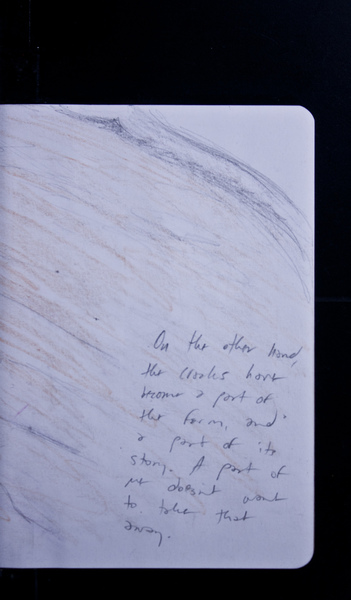 On the other hand,
the cracks have
become a part of
the form, and
a part of its
story. A part of
me doesn't want
to take that
away.